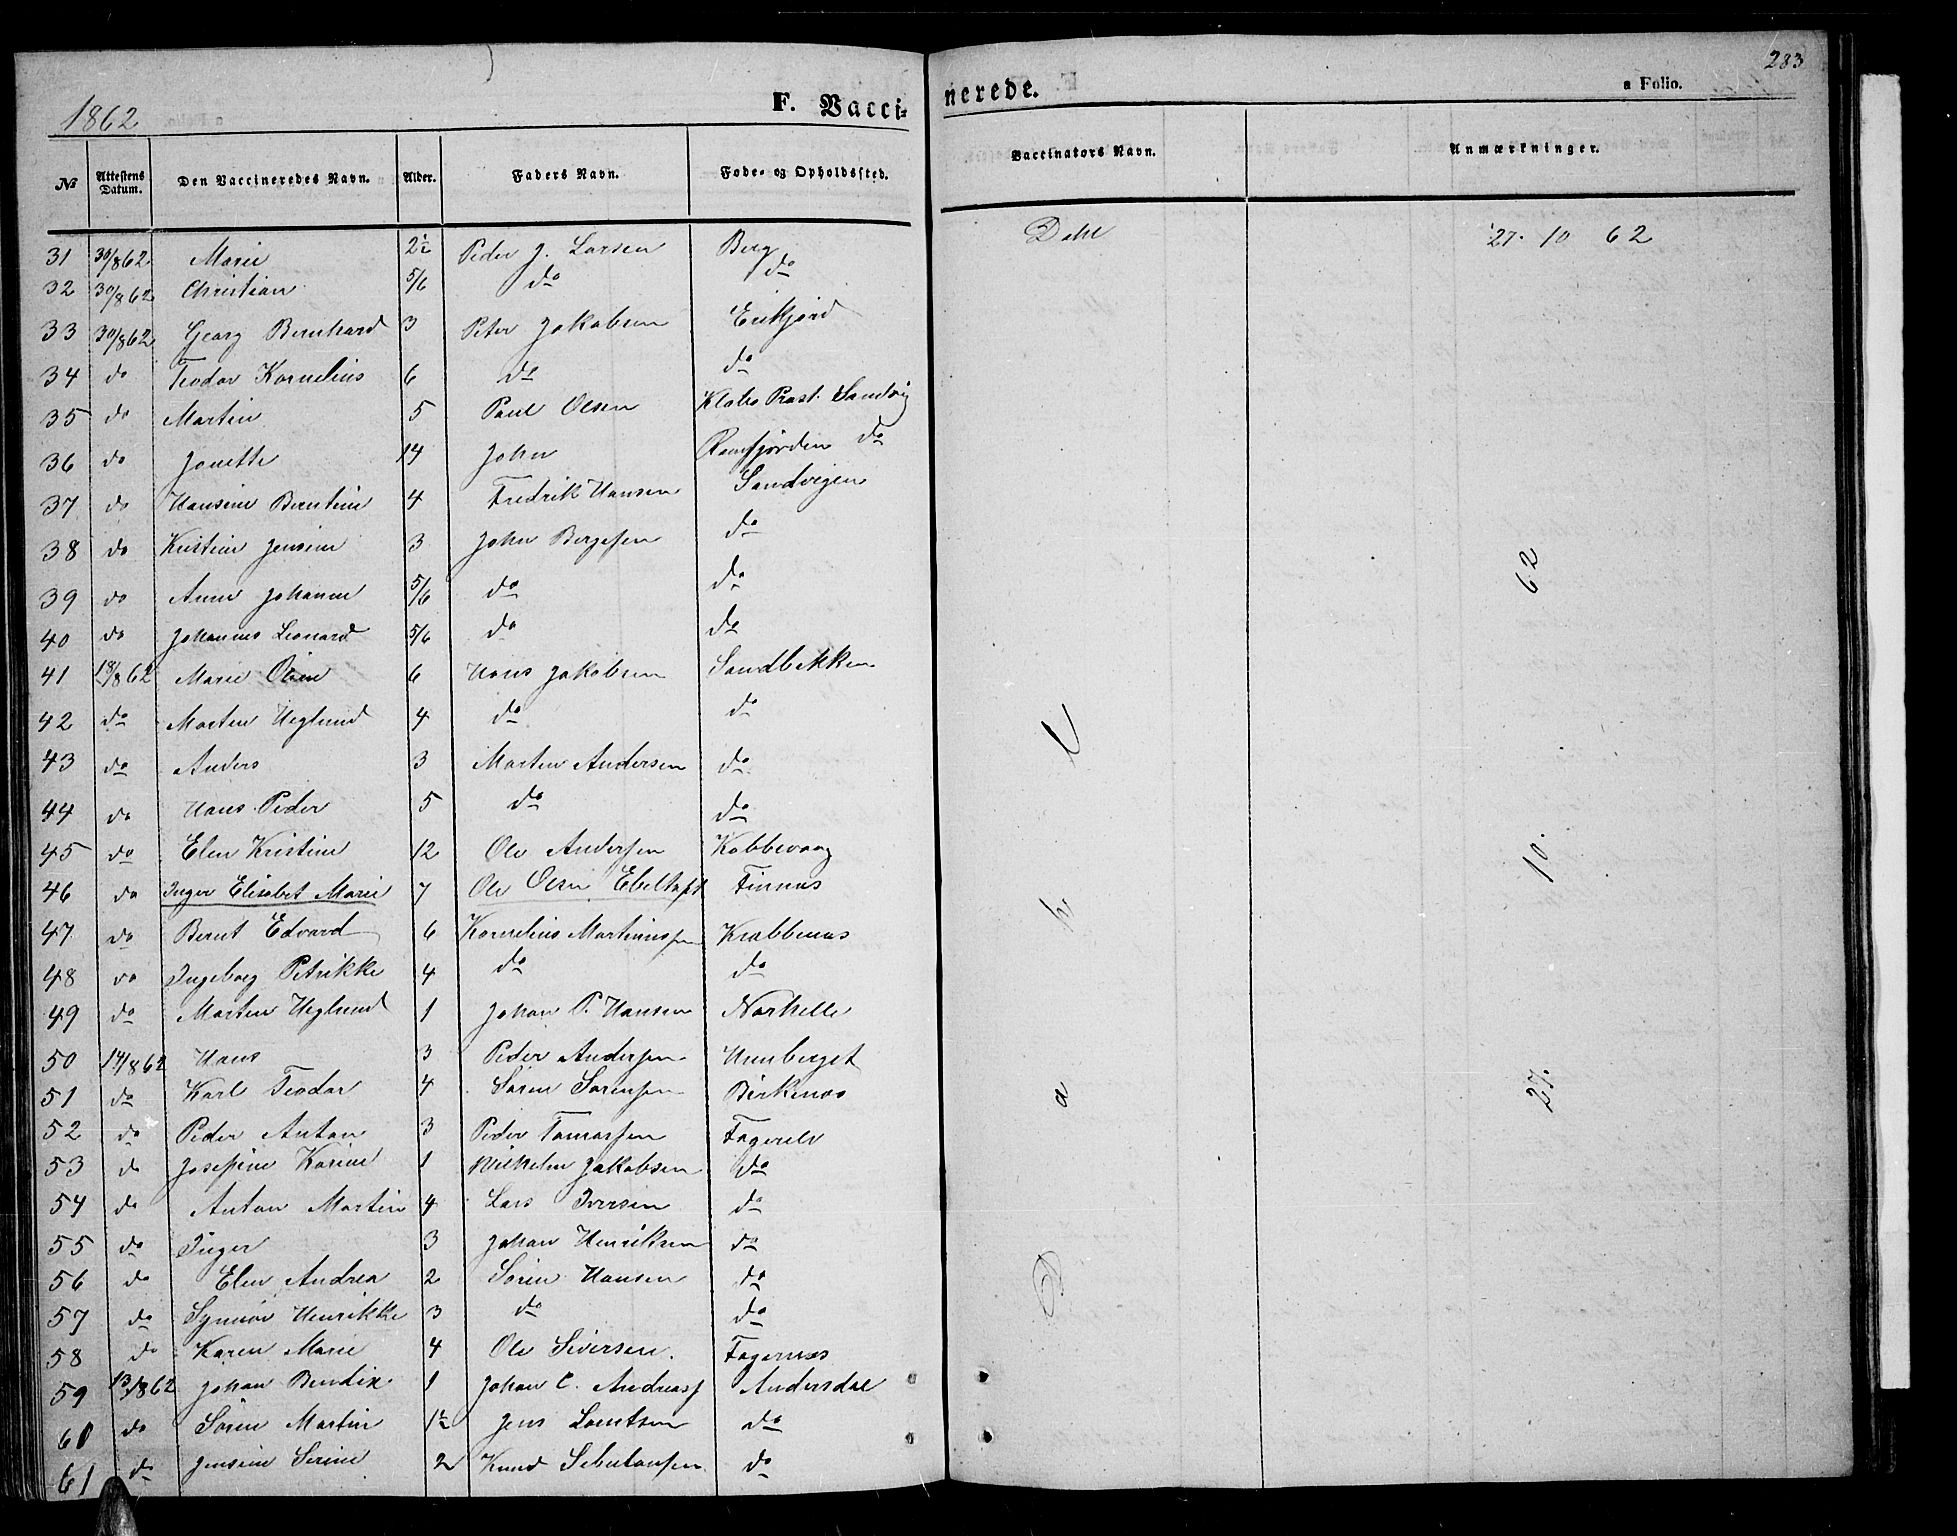 283
1862
F. Vaccinerede.
a Folio.
№ Attestens Datum. Den Vaccineredes Navn. Alder. Faders Navn. Føde- og Opholdssted. Vaccinators Navn. Anmærkninger.
31 30/8 62 Marie 2½ Peder J. Larsen Berg Dahl 27. 10 62
32 30/8 62 Christian 5/6 do do
33 30/8 62 Georg Bernhard 3 Peter Jakobsen Erikfjord
34 do Teodor Kornelius 6 do do
35 do Martin 5 Paul Olsen Klabo Præst. Sandvig
36 do Jonette 14 John Ramfjorden do
37 do Hansine Berntine 4 Fredrik Hansen Sandvigen
38 do Kristine Jensine 3 John Bergesen do
39 do Anne Johanne 5/6 do do 62
40 do Johannes Leonard 5/6 do do
41 18/8 62 Marie Oline 6 Hans Jakobsen Sandbekken
42 do Morten Heglund 4 do do l
43 do Anders 3 Morten Andersen do
44 do Hans Peder 5 do do
45 do Elen Kristine 12 Ole Andersen Kobbevaag 10.
46 do Inger Elisabet Marie 7 Ole Olsen Ebeltoft Finnæs
47 do Bernt Edvard 6 Kornelius Martinussen Krabbenæs h
48 do Ingeborg Petrikke 4 do do
49 do Morten Heglund 1 Johan P. Hansen Norkelle
50 14/8 62 Hans 3 Peder Andersen Hunberget
51 do Karl Teodor 4 Sören Sörensen Birkenæs a 27.
52 do Peder Anton 3 Peder Tomassen Fagerelv
53 do Josefine Karine 1 Wilhelm Jakobsen do
54 do Anton Martin 4 Lars Iversen do
55 do Inger 3 Johan Henriksen do
56 do Elen Andrea 2 Sören Hansen do
57 do Synnöv Henrikke 3 do do D
58 do Karen Marie 4 Ole Siversen. Fagernæs
59 13/8 62 Johan Bendix 1 Johan C. Andreass Andersdal
60 do Sören Martin 1½ Jens Lorntsen do
61 do Jensine Serine 2 Knud do